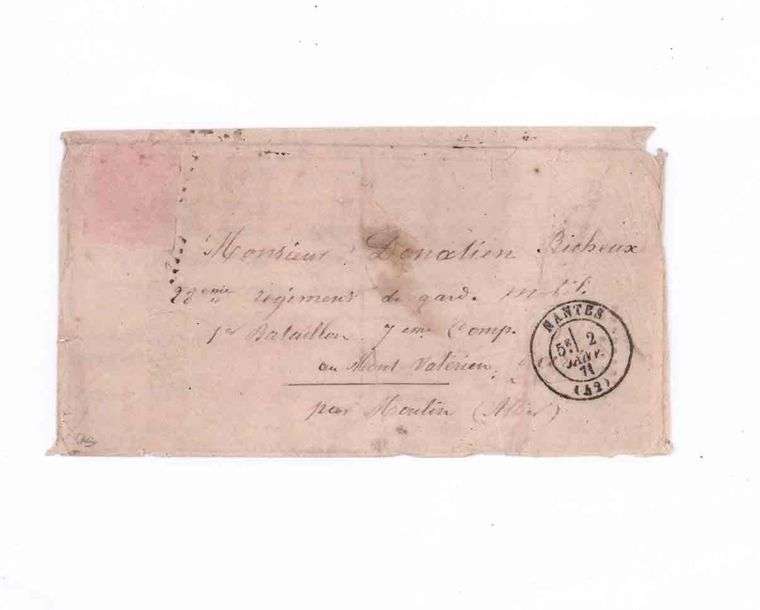 Monsieur Donatien Bicheux
28eme régiment de garde mob.
1er Bataillon 7eme Comp.
au Mont Valérien
par Moulin (Allier)
NANTES
5E 2
JANV.
71
(42)